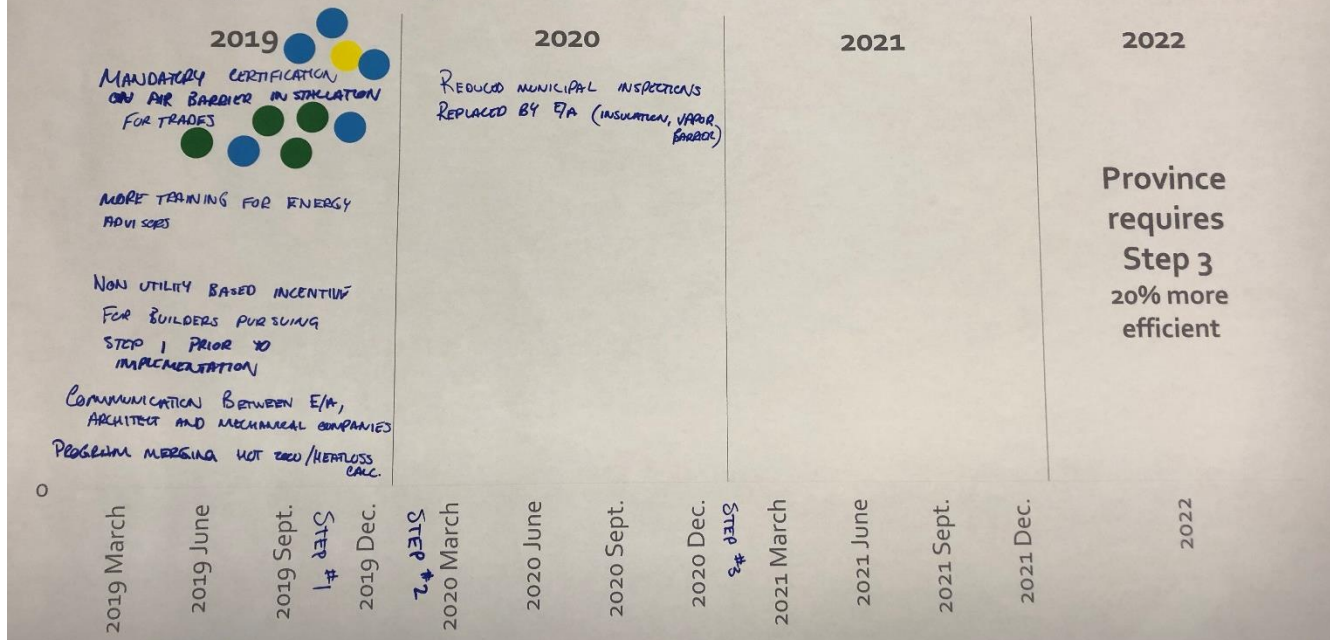 2019
2020
2021
2022
MANDATORY CERTIFICATION
ON AIR BARRIER INSTALLATION
FOR TRADES
MORE TRAINING FOR ENERGY
ADVISORS
NON UTILITY BASED INCENTIVE
FOR BUILDERS PURSUING
STEP 1 PRIOR TO
IMPLEMENTATION
COMMUNICATION BETWEEN E/A,
ARCHITECT AND MECHANICAL COMPANIES
PROGRAM MERGING HOT 2000/HEATLOSS
CALC.
REDUCED MUNICIPAL INSPECTIONS
REPLACED BY E/A (INSULATION, VAPOR
BARRIER)
Province
requires
Step 3
20% more
efficient
0
2019 March
2019 June
2019 Sept.
STEP #1
2019 Dec.
STEP #2
2020 March
2020 June
2020 Sept.
2020 Dec.
STEP #3
2021 March
2021 June
2021 Sept.
2021 Dec.
2022